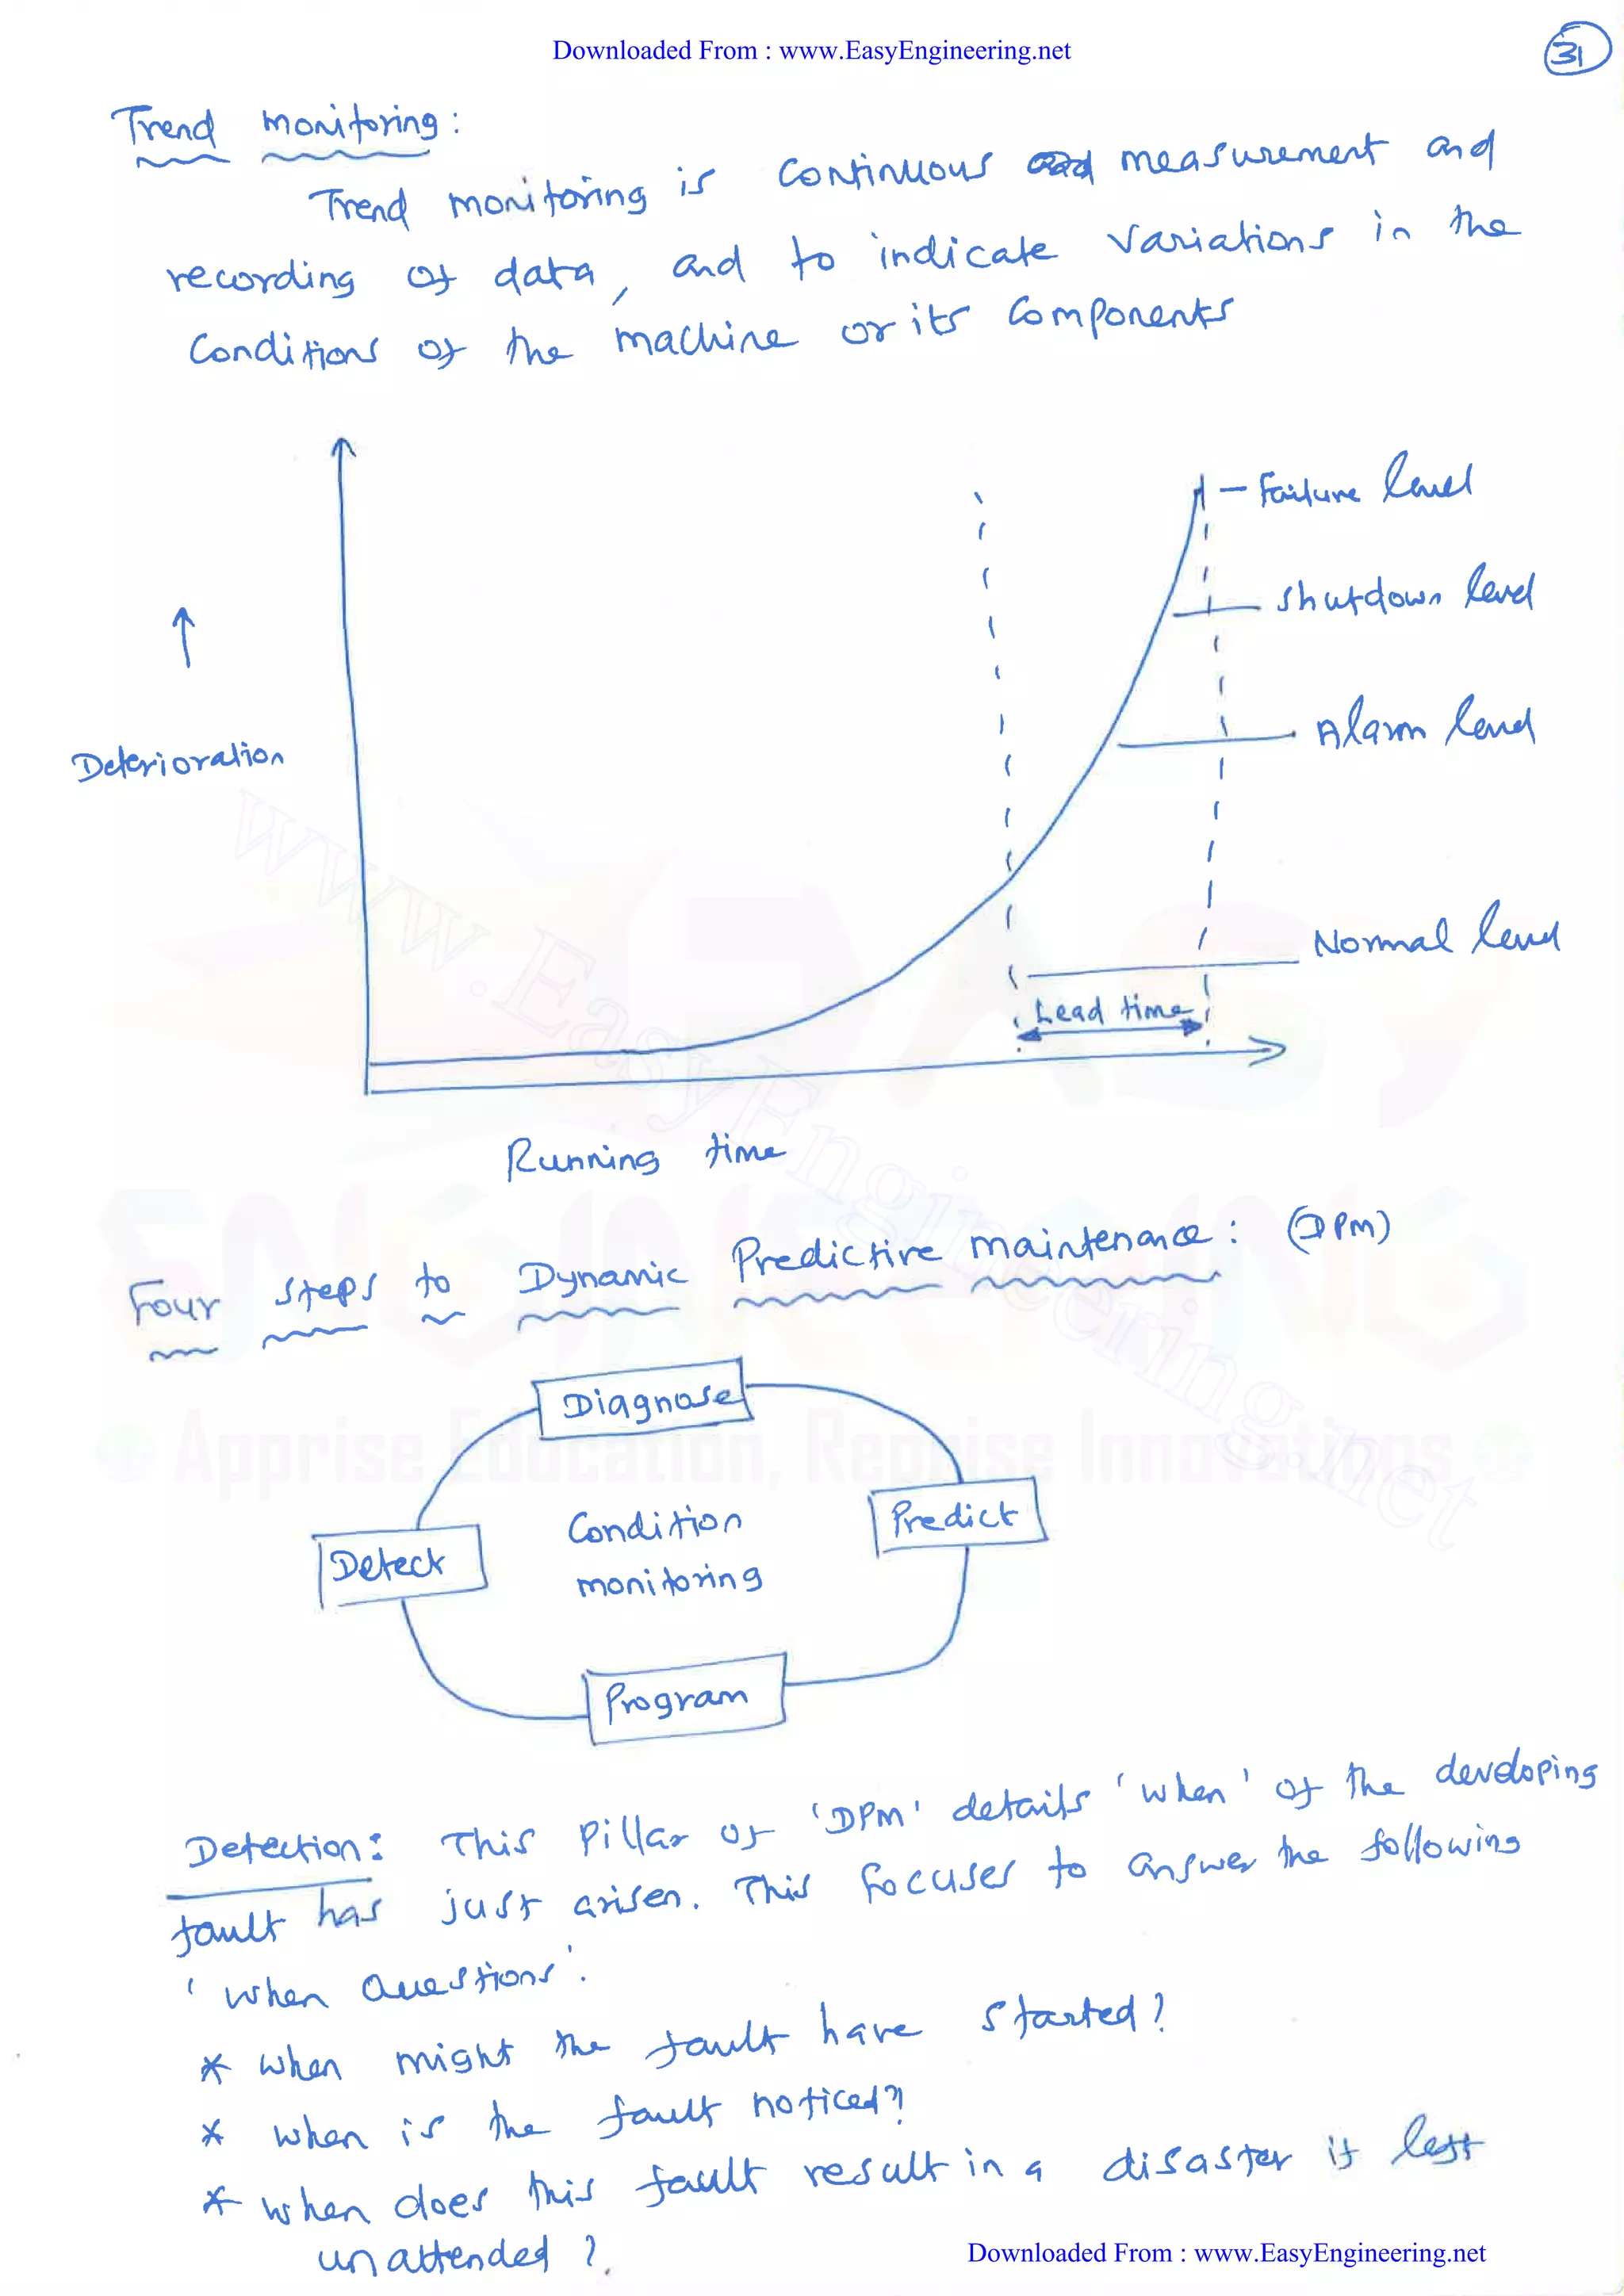 Downloaded From : www.EasyEngineering.net
31
Trend monitoring :
Trend monitoring is continuous measurement and
recording of data, and to indicate variations in the
conditions of the machine or its components
- Failure level
shutdown level
Alarm level
Deterioration
Normal level
Lead time
Running time
Four steps to Dynamic Predictive maintenance : (DPM)
Diagnose
Condition
monitoring
Predict
Detect
Program
Detection : This pillar of 'DPM' details 'when' of the developing
fault has just arisen. This focuses to answer the following
'when questions'.
* when might the fault have started ?
* when is the fault noticed ?
* when does this fault result in a disaster if left
unattended ?
Downloaded From : www.EasyEngineering.net
www.EasyEngineering.net
EASY
ENGINEERING
Apprise Education, Reprise Innovations